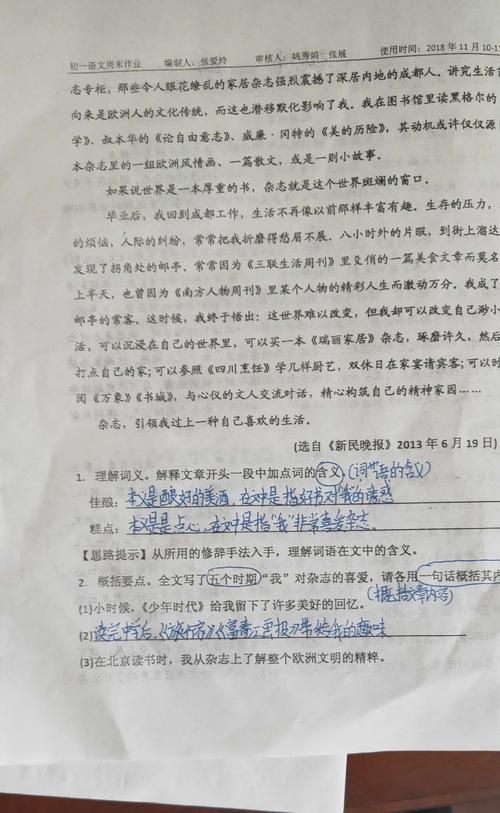 初一语文周末作业 编制人：张爱玲 审核人：姚秀娟 张展 使用时间：2018年11月10-1
志专柜，那些令人眼花缭乱的家居杂志强烈震撼了深居内地的成都人。讲究生活
向来是欧洲人的文化传统，而这也潜移默化影响了我。我在图书馆里读黑格尔的
学》、叔本华的《论自由意志》、威廉·冈特的《美的历险》，其动机或许仅仅源
本杂志里的一组欧洲风情画、一篇散文，或是一则小故事。
如果说世界是一本厚重的书，杂志就是这个世界斑斓的窗口。
毕业后，我回到成都工作，生活不再像以前那样丰富有趣。生存的压力，
的烦恼，人际的纠纷，常常把我折磨得愁眉不展。八小时外的片暇，到街上溜达
发现了拐角处的邮亭。常常因为《三联生活周刊》里炙俏的一篇美食文章而莫名
上半天，也曾因为《南方人物周刊》里某个人物的精彩人生而激动万分。我成了
邮亭的常客。这时候，我终于悟出：这世界难以改变，但我却可以改变自己渺小
活，可以沉浸在自己的世界里，可以买一本《瑞丽家居》杂志，琢磨许久，然后
打点自己的家；可以参照《四川烹饪》学几样厨艺，双休日在家宴请宾客；可以时
阅《万象》《书城》，与心仪的文人交流对话，精心构筑自己的精神家园……
杂志，引领我过上一种自己喜欢的生活。
(选自《新民晚报》2013年6月19日)
1. 理解词义。解释文章开头一段中加点词的含义。(词语的含义)
佳酿：本义是酿好的美酒，在文中是指好书对我的诱惑
糕点：本义是点心，在文中是指"我"非常喜爱杂志。
【思路提示】从所用的修辞手法入手，理解词语在文中的含义。
2. 概括要点。全文写了五个时期"我"对杂志的喜爱，请各用一句话概括其内
(概括文章内容)
(1)小时候，《少年时代》给我留下了许多美好的回忆。
(2)读完中学后，《旅行家》《富春江画报》带给我的趣味
(3)在北京读书时，我从杂志上了解整个欧洲文明的精粹。